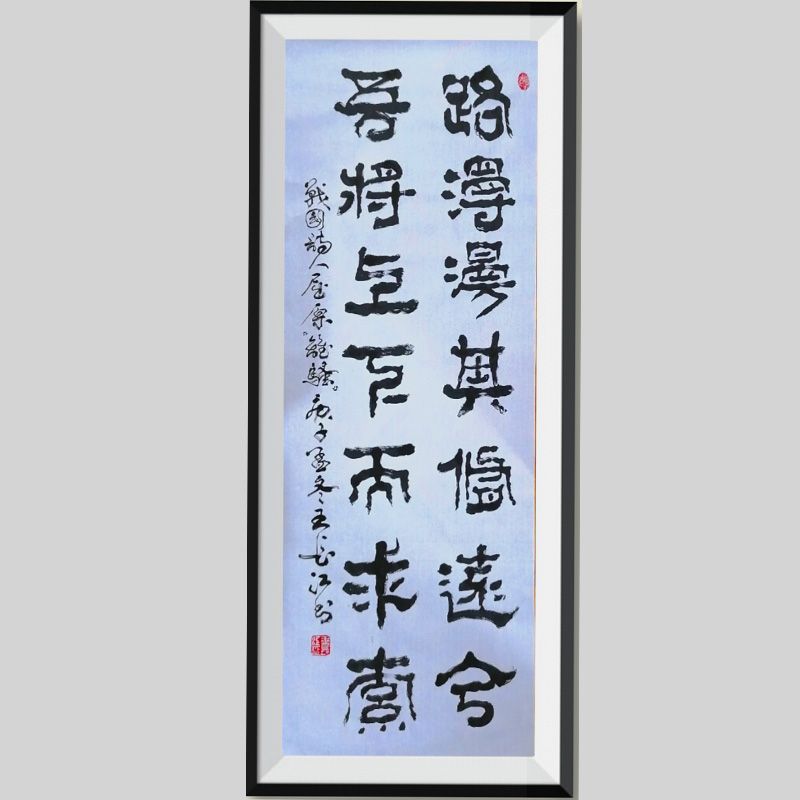 路漫漫其修遠兮
吾將上下而求索
戰國詩人屈原離騷庚子孟冬王長江書